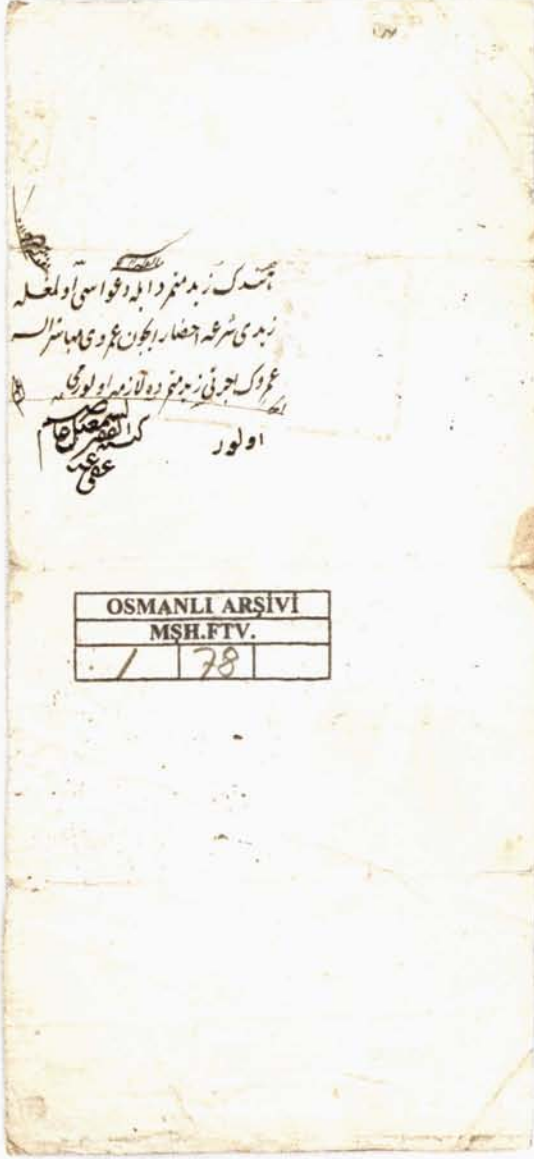 هندك زيد متمرد ايله دعواسی اولمغله
زيدی شرعه احضار ايچون عمروی مباشر السه
عمروك اجرتی زيد متمرده لازمه اولورمی
اولور
كتبه الفقير
عفی عنه
OSMANLI ARŞİVİ
MŞH.FTV.
1 78